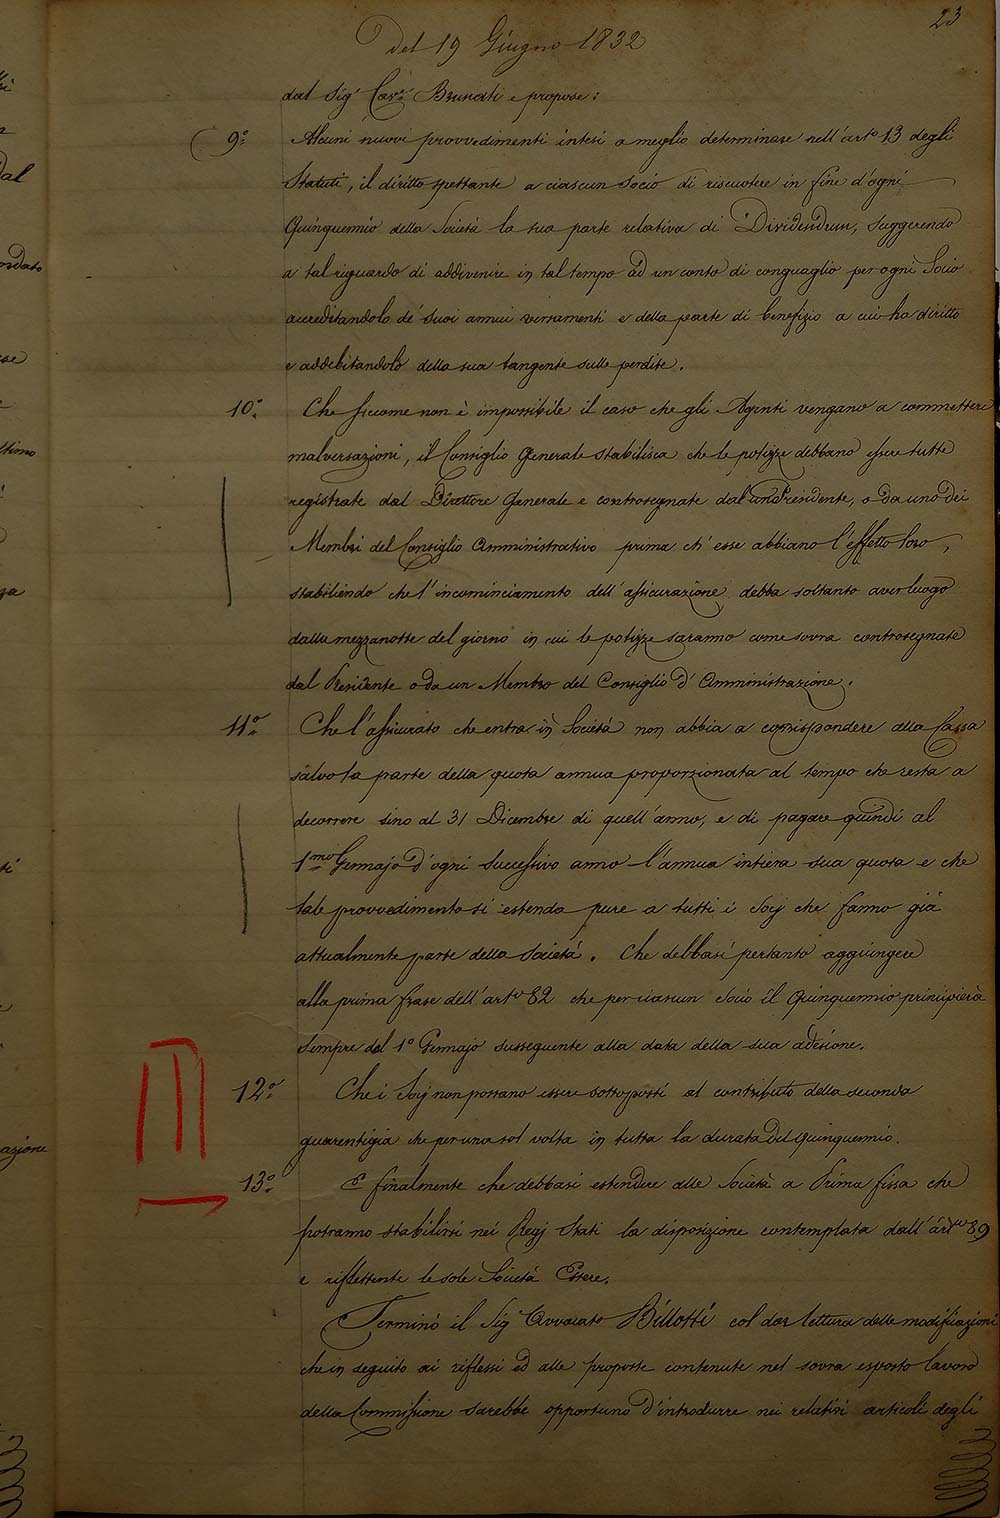 23
Del 19 Giugno 1832
dal Sig.r Cav.e Brunati e propose:
9.° Alcuni nuovi provvedimenti intesi a meglio determinare nell'art.o 13 degli
Statuti, il diritto spettante a ciascun Socio di riscuotere in fine d'ogni
Quinquennio della Società la sua parte relativa di Dividendum, suggerendo
a tal riguardo di addivenire in tal tempo ad un conto di conguaglio per ogni Socio
accreditandolo de' suoi annui versamenti e della parte di benefizio a cui ha diritto
e addebitandolo della sua tangente sulle perdite.
10.° Che siccome non è impossibile il caso che gli Agenti vengano a commettere
malversazioni, il Consiglio Generale stabilisca che le polizze debbano essere tutte
registrate dal Direttore Generale e controsegnate dal Presidente, o da uno dei
Membri del Consiglio Amministrativo prima ch'esse abbiano l'effetto loro,
stabiliendo che l'incominciamento dell'assicurazione debba soltanto aver luogo
dalla mezzanotte del giorno in cui le polizze saranno come sovra controsegnate
dal Presidente o da un Membro del Consiglio d'Amministrazione.
11.° Che l'assicurato che entra in Società non abbia a corrispondere alla Cassa
salvo la parte della quota annua proporzionata al tempo che resta a
decorrere sino al 31 Dicembre di quell'anno, e di pagare quindi al
1.mo Gennajo d'ogni successivo anno l'annua intiera sua quota e che
tale provvedimento si estenda pure a tutti i Socj che fanno già
attualmente parte della Società. Che debbasi pertanto aggiungere
alla prima frase dell'art.o 82 che per ciascun Socio il Quinquennio principierà
sempre dal 1° Gennajo susseguente alla data della sua adesione.
12.° Che i Socj non possano essere sottoposti al contributo della seconda
guarentigia che per una sol volta in tutta la durata del quinquennio.
13.° E finalmente che debbasi estendere alle Società a Prima fissa che
potranno stabilirsi nei Regj Stati la disposizione contemplata dall'art.o 89
e riflettente le sole Società Estere.
Terminò il Sig.r Avvocato Billotti col dar lettura delle modificazioni
che in seguito ai riflessi ed alle proposte contenute nel sovra esposto lavoro
della Commissione sarebbe opportuno d'introdurre nei relativi articoli degli